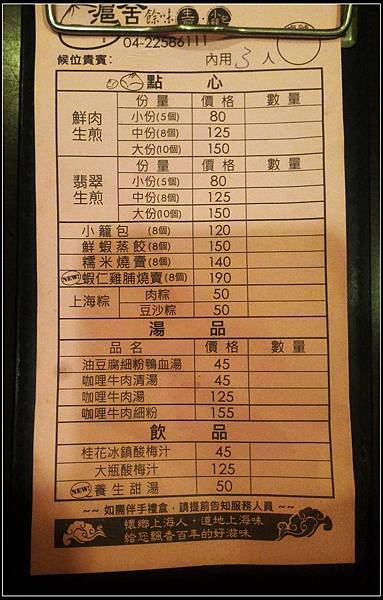 滬舍 餘味
04-22586111
候位貴賓: 內用 3 人
點 心
鮮肉生煎 份 量 價 格 數 量
小份(5個) 80
中份(8個) 125
大份(10個) 150
翡翠生煎 份 量 價 格 數 量
小份(5個) 80
中份(8個) 125
大份(10個) 150
小籠包 (8個) 120
鮮蝦蒸餃(8個) 150
糯米燒賣(8個) 140
NEW! 蝦仁雞脯燒賣(8個) 190
上海粽 肉粽 50
豆沙粽 50
湯 品
品 名 價 格 數 量
油豆腐細粉鴨血湯 45
咖哩牛肉清湯 45
咖哩牛肉湯 125
咖哩牛肉細粉 155
飲 品
桂花冰鎮酸梅汁 45
大瓶酸梅汁 125
NEW! 養生甜湯 50
~~ 如需伴手禮盒，請提前告知服務人員 ~~
懷鄉上海人，道地上海味
給您飄香百年的好滋味